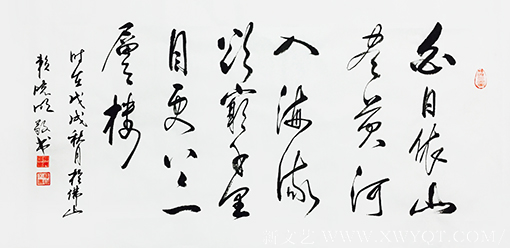 白日依山
盡黄河
入海流
欲窮千里
目更上一
層樓
时在戊戌秋月於佛山
晓明敬书
WWW.XWYQT.COM